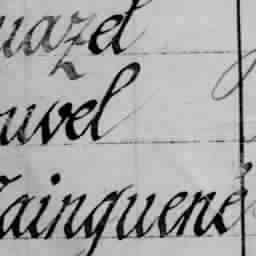 uazel
uvel
ainguené